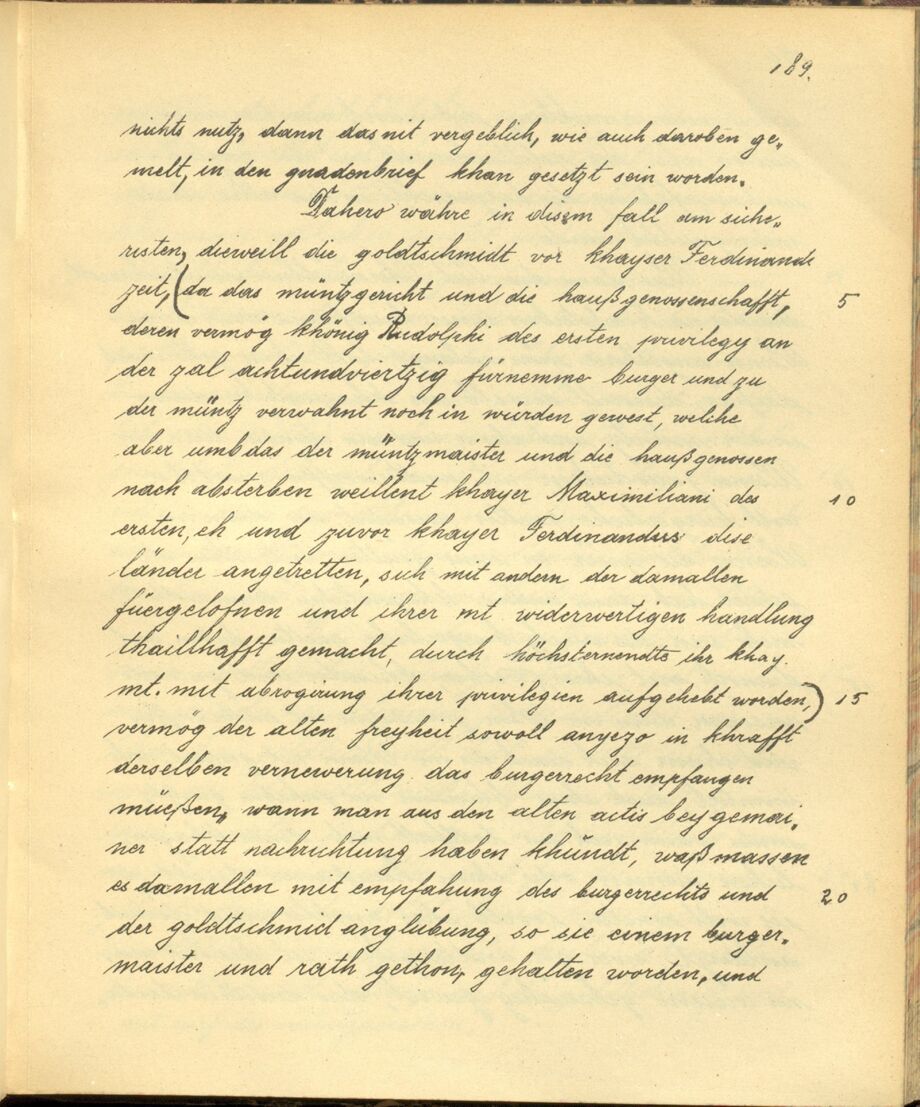 189.
nichts nutz, dann das nit vergeblich, wie auch daroben ge„
melt, in den gnadenbrief khan gesetzt sein worden.
Dahero währe in disem fall am siche„
risten, dieweill die goldtschmidt vor khayser Ferdinands
zeit, (da das müntzgericht und die haußgenossenschafft, 5
deren vermög khönig Rudolphi des ersten privilegy an
der zal achtundviertzig fürnemme burger und zu
der müntz verwahnt noch in würden gewest, welche
aber umb das der müntzmaister und die haußgenossen
nach absterben weillent khayer Maximiliani des 10
ersten, eh und zuvor khayer Ferdinandus dise
länder angetretten, sich mit andern der damallen
füergelofnen und ihrer mt widerwertigen handlung
thaillhafft gemacht, durch höchsternendte ihr khay.
mt. mit abrogirung ihrer privilegien aufgehebt worden,) 15
vermög der alten freyheit sowoll anyezo in khrafft
derselben vernewerung das burgerrecht empfangen
müeßen, wann man aus den alten actis bey gemai„
ner statt nachrichtung haben khündt, waß massen
es damallen mit empfahung des burgerrechts und 20
der goldtschmid anglübung, so sie einem burger„
maister und rath gethon, gehalten worden, und